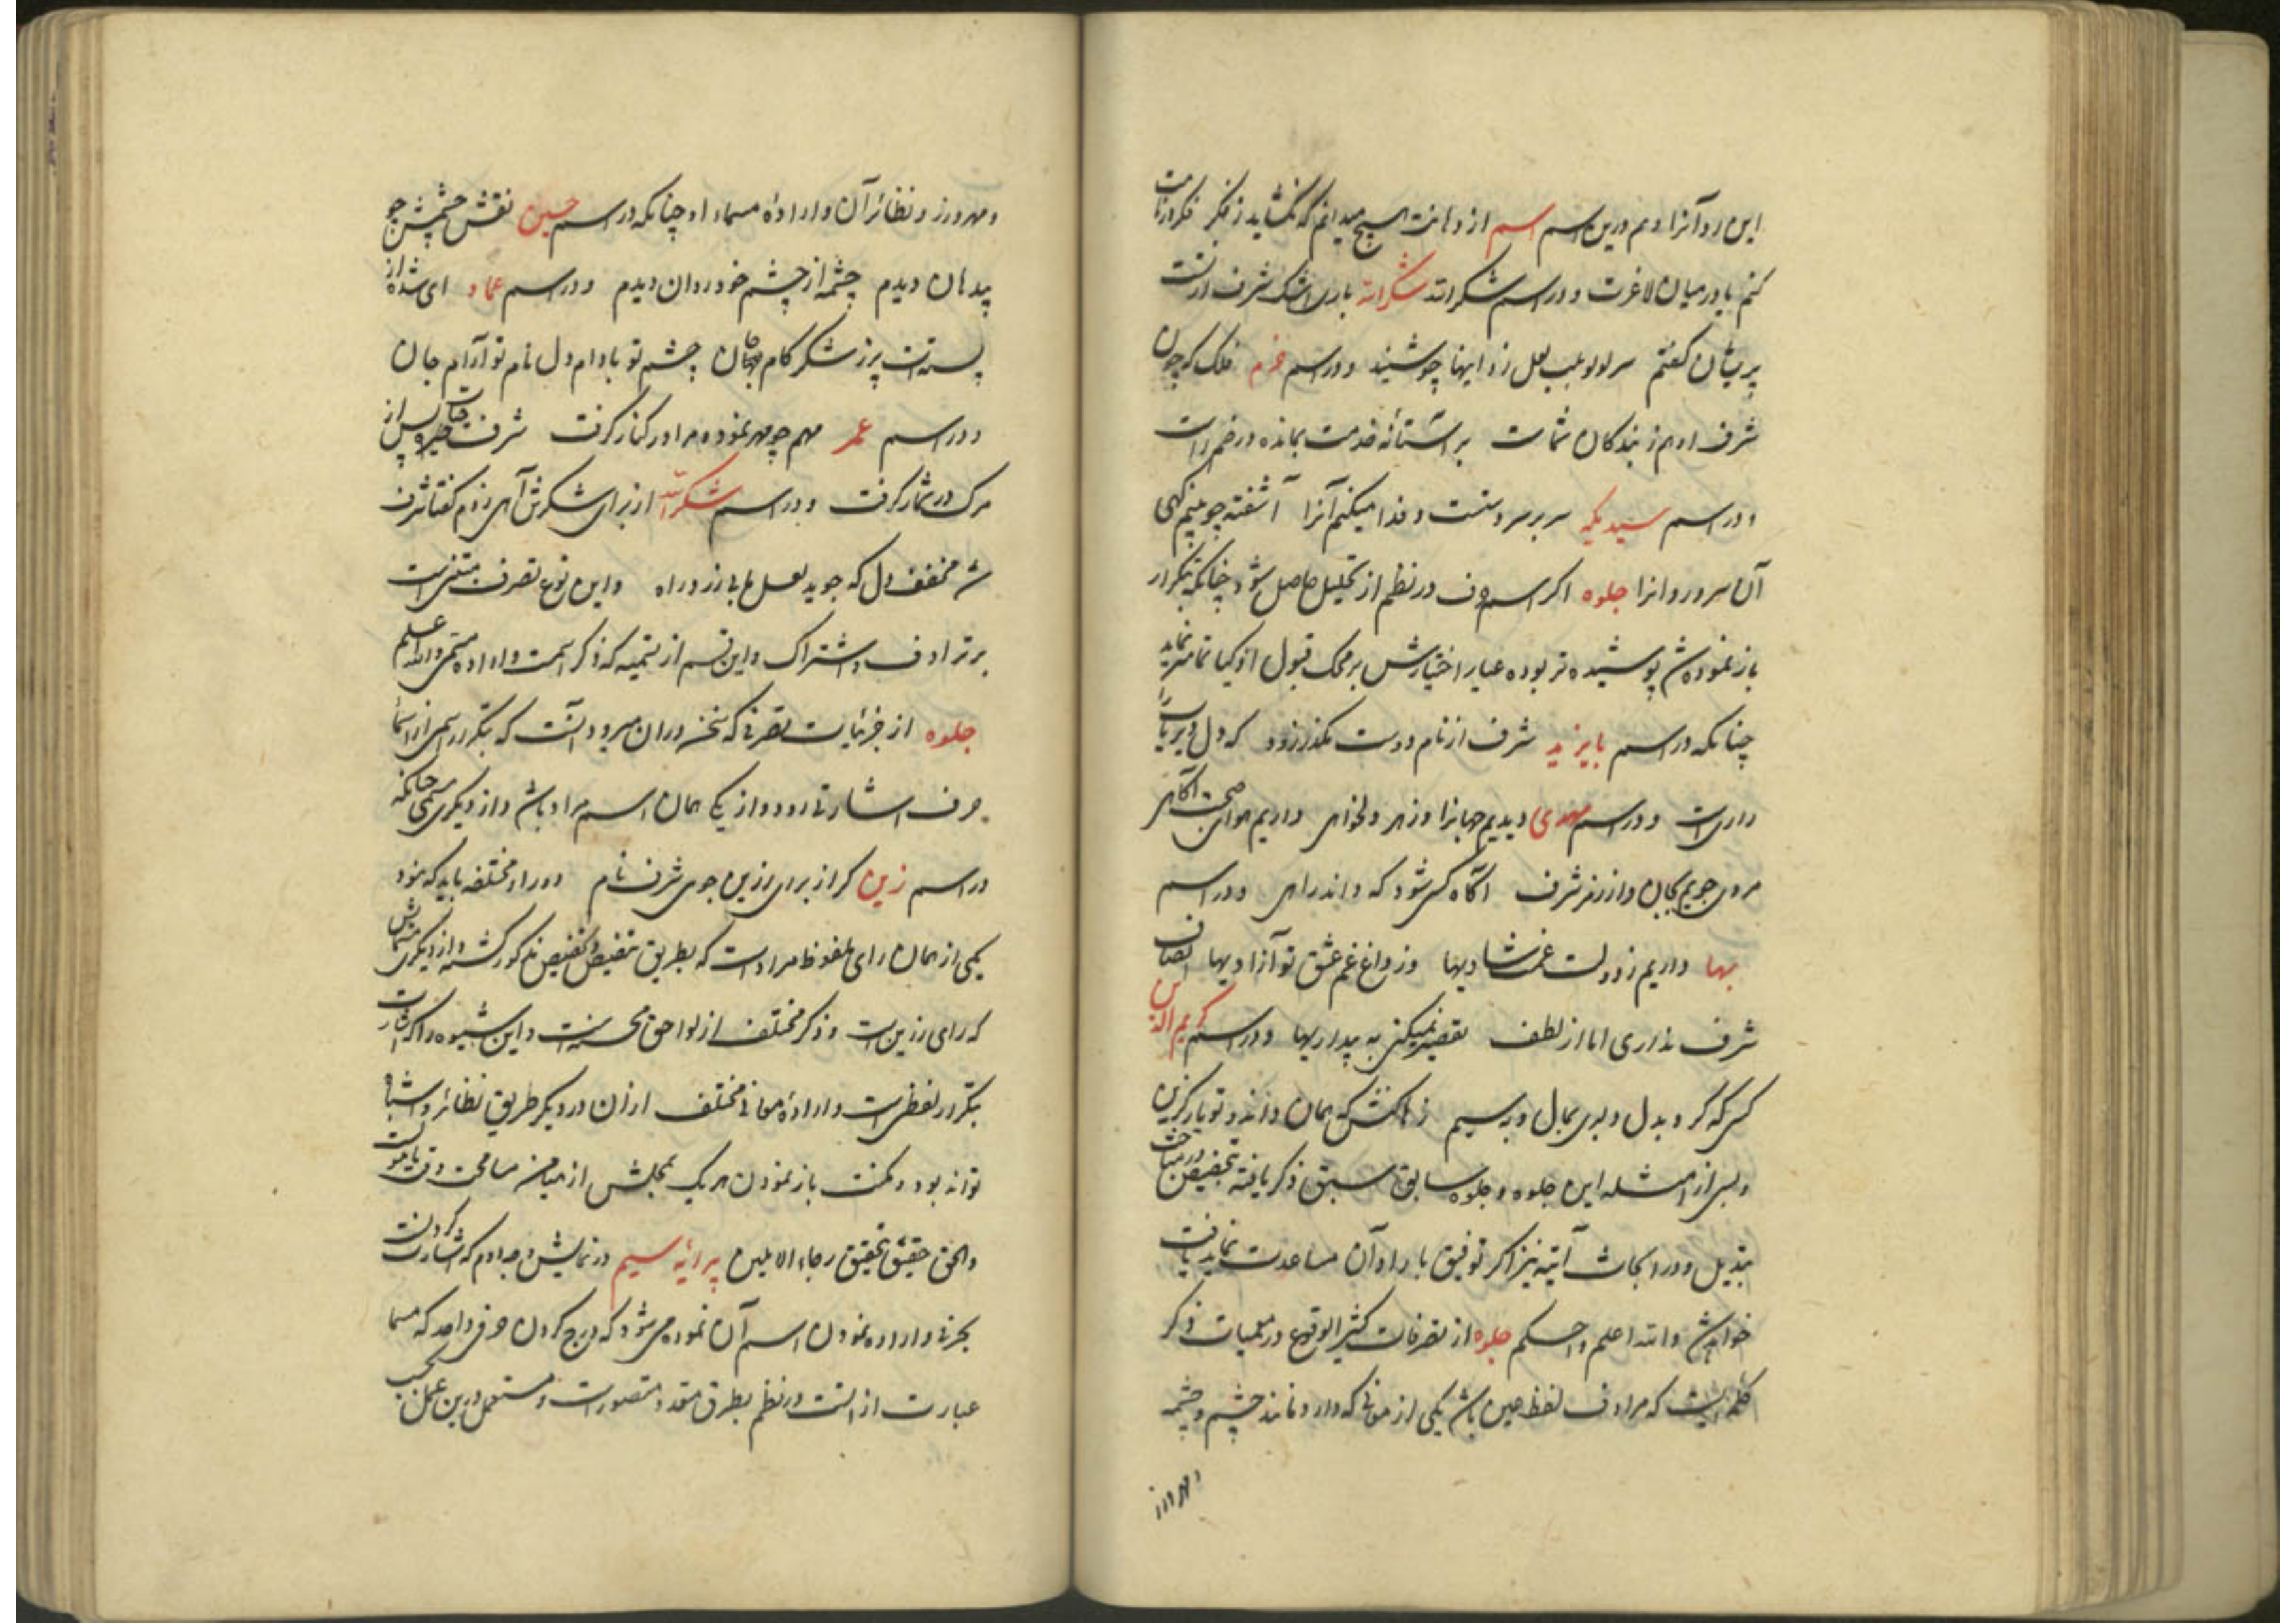 این رد آنرا و هم درین اسم اسم از دهانت هیچ میدانم که نگشاید ز فکر فکر در
کنم یا در میان لاغرت و در اسم شکرالله شکرالله باری اشک شرف
پریشان گفتم سر لولو عجب لعل زد اینها چو شنید و در اسم خرم فلک که چون
شرف او هم ز بندگان شماست بر آستانه خدمت بمانده در خم راست
و در اسم سید یکه سر بر سر دستست و فدا میکنم آنرا آشفته چو بینم گهی
آن سرو روانرا جلوه اگر اسم حرف در نظم از تحلیل حاصل شود چنانکه بتکرار
باز نموده شد پوشیده تر بوده عیار اختیارش بر محک قبول اذکیا تمامتر نماید
چنانکه در اسم بایزید شرف از نام دوست مگذر زود که دل
داری است و در اسم مهدی دیدیم جهانرا و زهر دلخواهی داریم هوای صحبت آگاهی
مردی جویم بجان و از رمز شرف آگاه کسی شود که داند راهی و در اسم
بها داریم ز دولت غمت شادیها وز داغ غم عشق تو آزادیها انصاف
شرف نداری اما از لطف تقصیر نمیکنی به بیدادیها و در اسم کریم الدین
کسی که گرود بدل دلبری بمال و بسیم ز ناکسی همان داند و تو یار گزین
و بسی از امثله این جلوه و جلوه سابق سبق ذکر یافته در مباحث تخصیص
تبدیل و در ابحاث آتیه نیز اگر توفیق با یراد آن مساعدت نماید یافت
خواهد شد والله اعلم و احکم جلوه از تصرفات کثیر الوقوع در معمیات ذکر
کلمه ایست که مرادف لفظ عین باشد یکی از معانی که دارد مانند چشم و چشمه
و مهر و زر
و مهر و زر و نظائر آن و اراده مسماء او چنانکه در اسم حسین نقش چشمش چو
پدهان دیدم چشمه از چشم خود روان دیدم و در اسم عماد ای شده از
پسته ات پر ز شکر کام جهان چشم تو بادام دل نام تو آرام جان
و در اسم عمر مهم چو مهر نموده مرا در کنار گرفت شرف حیات پس از
مرگ در شمار گرفت و در اسم شکرالله از برای شکرش آهی زدم گفتا شرف
شد مخفف دل که جوید لعل ما بی زر و راه و این نوع تصرف مبتنی است
بر ترادف و اشتراک و این قسم از تسمیه که ذکر اسمست و اراده مسمی والله اعلم
جلوه از جزئیات تصرفی که سخن در ان میرود آنست که بتکرار اسمی از اسما
حرف اشارتی رود و از یکی همان اسم مراد باشد و از دیگری مسمی چنانکه
در اسم زین کر از برای رزین جوی شرف نام دو را و مختلفه باید که نمود
یکی از همان رای ملفوظ مراد است که بطریق تنصیص و تخصیص مذکور گشته و از دیگری مسماش
که رای رزین است و ذکر مختلف از لواحق محسنه است و این شیوه را که اشارت
بتکرار لفظی است و اراده معانی مختلف ازان در دیگر طریق نظائر و اشباه
تواند بود و مکنت باز نمودن هر یک بمجلش از میامن مسامحت وقت نامولست
والحق حقیق تحقیق رجاء الاملین پیرایه سیم در نمایش وجه دوم که اشارت کردنست
بحرفی و اراده نمودن اسم آن نموده می شود که درج کردن حرفی واحد که مسما
عبارت از انست در نظم بطرق متعدد متصورست و مستعمل درین عمل بحسب